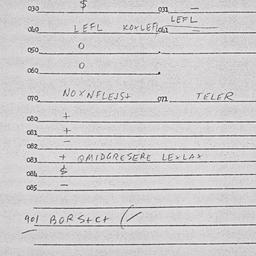 030 $ 031 —
040 LEFL KOXLEFL 041 LEFL
050 0
060 0
070 NOXNFLEJS+ 071 TELER
080 +
081 +
082 —
083 + QMIDGRESERE LEXLAX
084 $
085 —
901 BORS+C+ (/